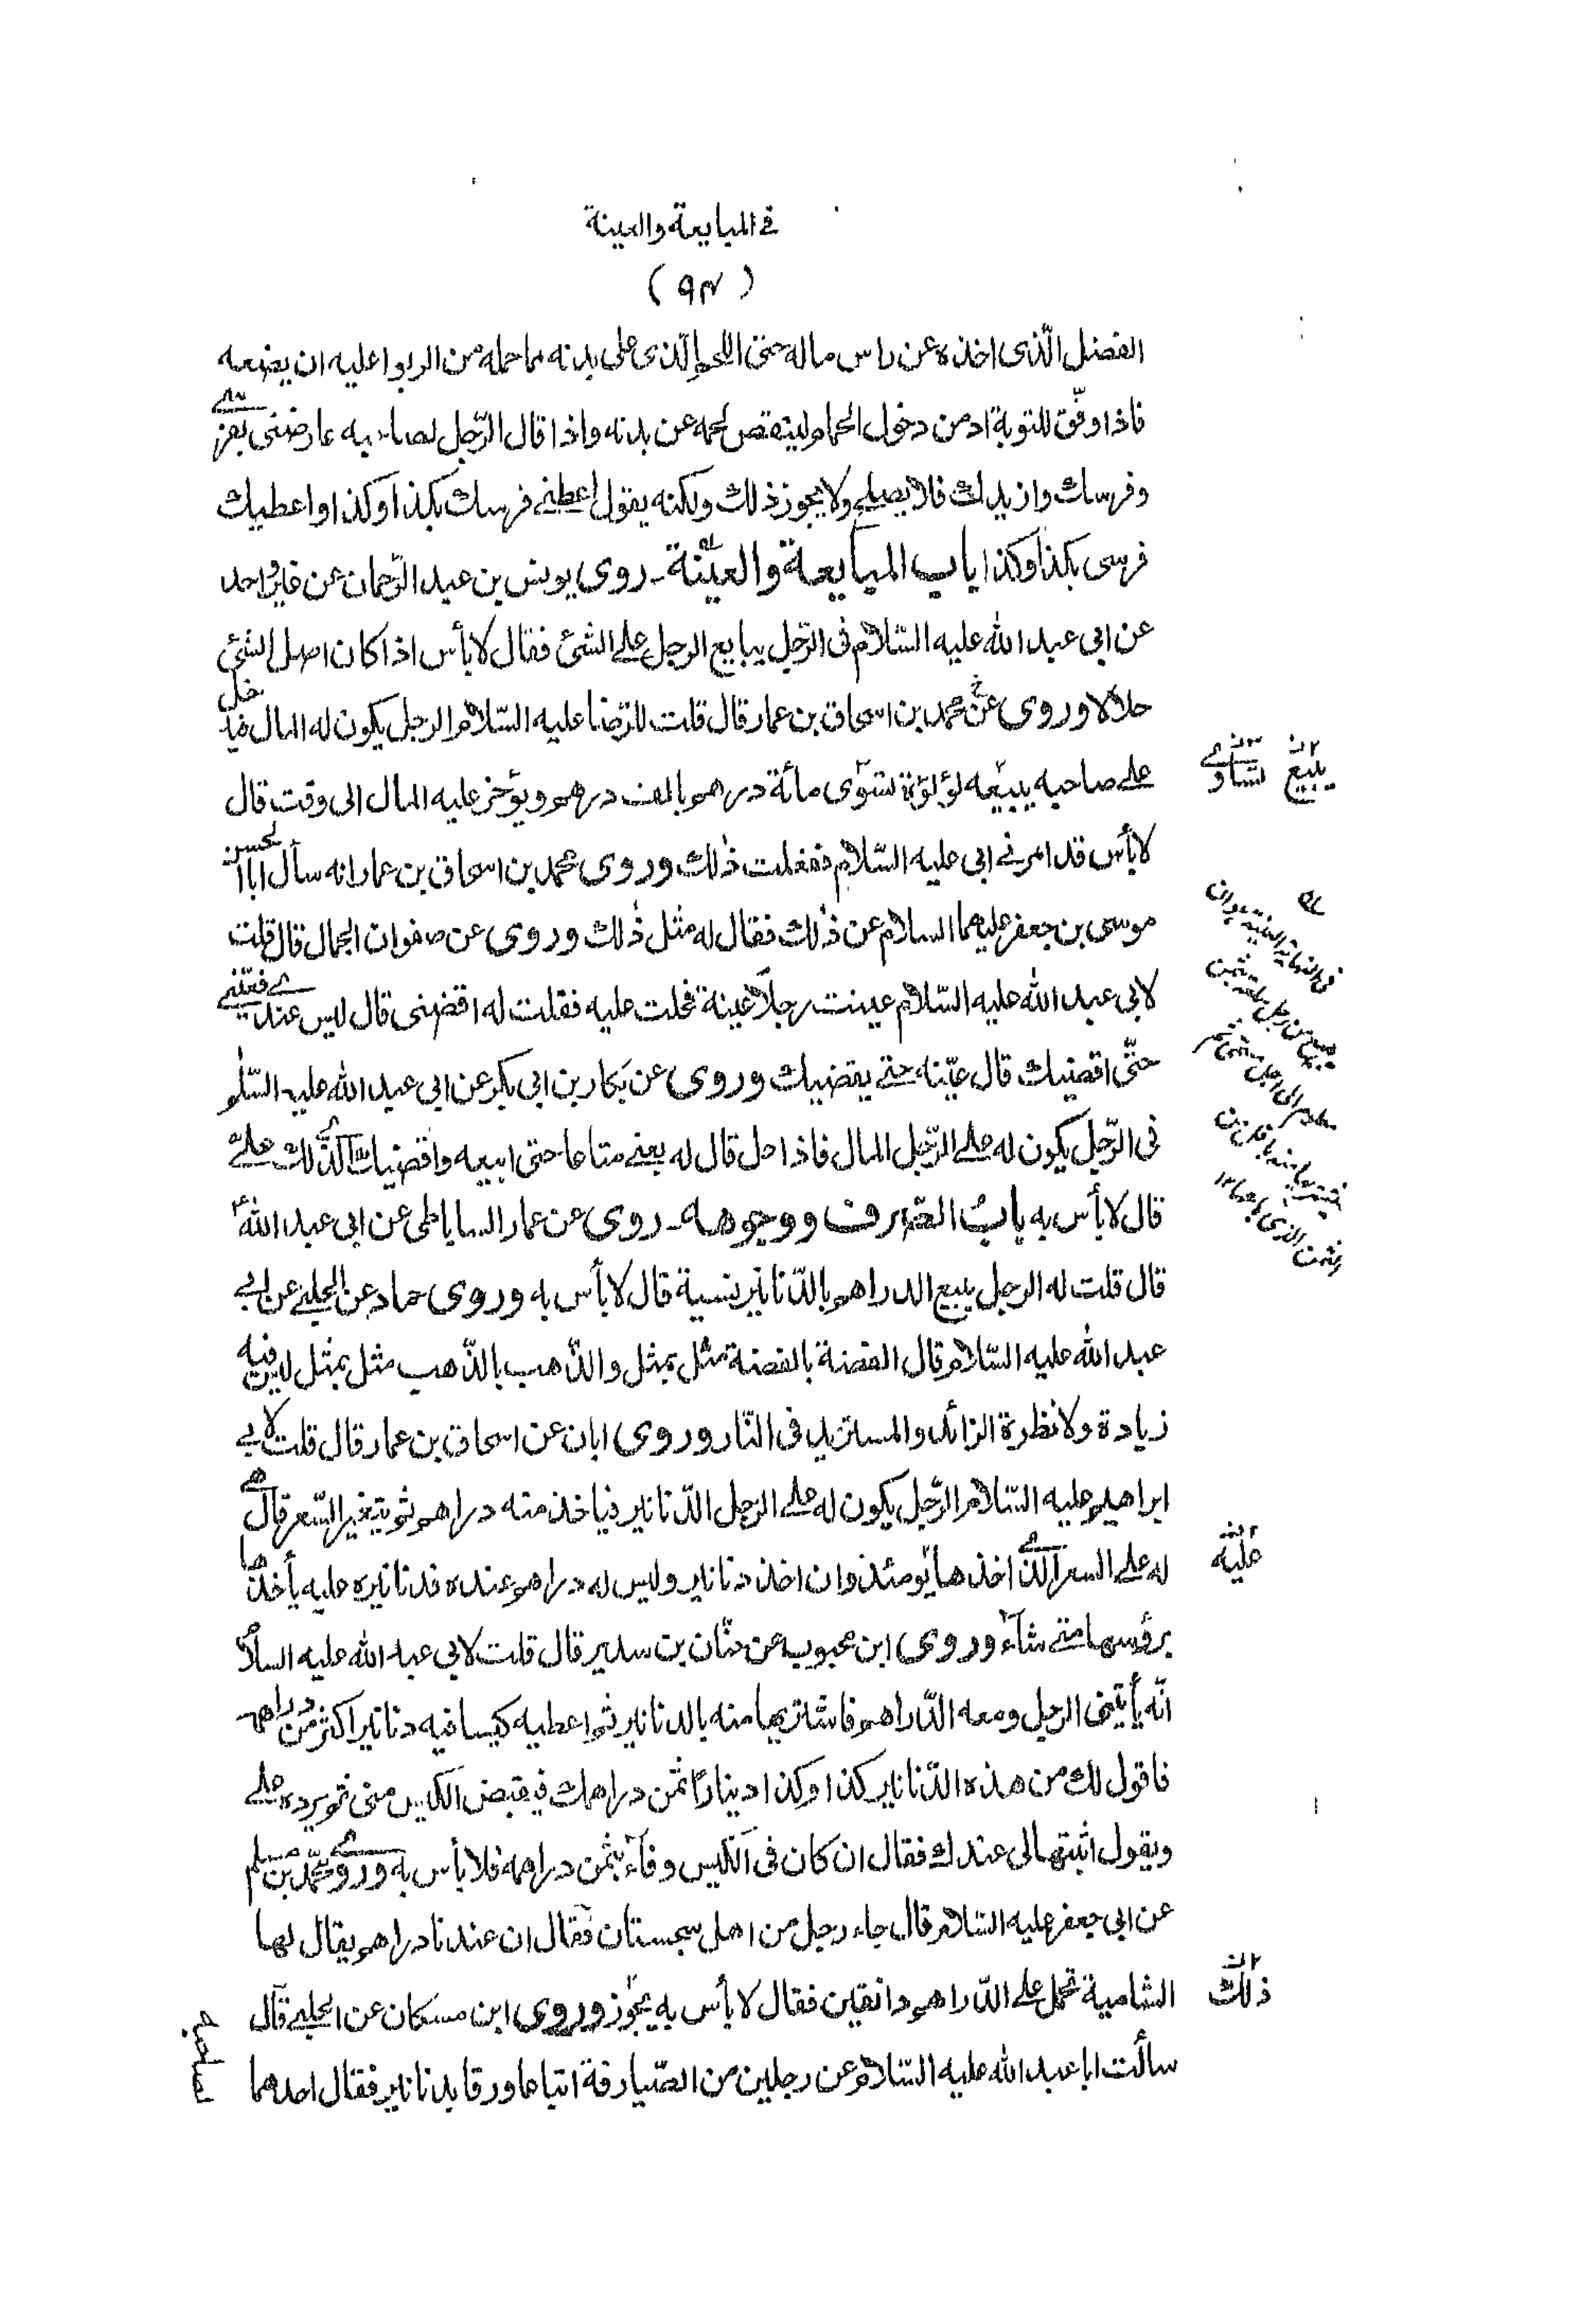 في المبايعة والعينة
(٩٣)
الفضل الّذى اخذه عن راس ماله حتى اللحم الّذى على بدنه مما حمله من الربوا عليه ان يضعه
فاذا وفّق للتوبة ادمن دخول الحمام لينقص لحمه عن بدنه واذا قال الرّجل لصاحبه عارضنى بفرسى
وفرسك وازيدك فلا يصلح ولا يجوز ذلك ولكنه يقول اعطنے فرسك بكذا وكذا واعطيك
فرسى بكذا وكذا باب المبايعة والعيّنة۔ روى يونس بن عبد الرّحمان عن غير واحد
عن ابى عبد الله عليه السّلام فى الرّجل يبايع الرجل علے الشئ فقال لا بأس اذا كان اصل الشئ
حلالا وروى عن محمد بن اسحاق بن عمار قال قلت للرّضا عليه السّلام الرجل يكون له المال فيدخل
علے صاحبه يبيعه لؤلؤة تسوّى مائة درهم بالف درهم ويؤخر عليه المال الى وقت قال
يبيع تساوے
لا بأس قد امرنے ابى عليه السّلام ففعلت ذٰلك وروى محمد بن اسحاق بن عمار انه سأل ابا الحسن
موسى بن جعفر عليهما السلام عن ذٰلك فقال له مثل ذٰلك وروى عن صفوان الجمال قال قلت
لابى عبد الله عليه السّلام عينت رجلا عينة فحلت عليه فقلت له اقضنى قال ليس عندے فعيّنے
حتّى اقضيك قال عيّنه حتے يقضيك وروى عن بكار بن ابى بكر عن ابى عبد الله عليه السّلٰم
فى الرّجل يكون له علے الرّجل المال فاذا حل قال له بعنے متاعا حتى ابيعه واقضيك الّذى لك علےّ
قال لا بأس به باب الصّرف ووجوهه۔ روى عن عمار الساباطى عن ابى عبد الله ؑ
قال قلت له الرجل يبيع الدراهم بالدّنانير نسية قال لا بأس به وروى حماد عن الحلبے عن ابے
عبد الله عليه السّلام قال الفضة بالفضة مثل بمثل والذّهب بالذّهب مثل بمثل ليس فيه
زيادة ولا نظرة الزائد والمستزيد فى النّار وروى ابان عن اسحاق بن عمار قال قلت لابے
ابراهيم عليه السّلام الرّجل يكون له علے الرجل الدّنانير فياخذ منه دراهم ثم يتغير السّعر قال هے
له على السعر الّذے اخذها يومئذ وان اخذ دنانير وليس له دراهم عنده فدنانيره عليه يأخذها
عليه
برؤسها متے شآء وروى ابن محبوب عن حنّان بن سدير قال قلت لابى عبد الله عليه السلام
انّه يأتينى الرجل ومعه الدّراهم فاشتريها منه بالدنانير ثم اعطيه كيسا فيه دنانير اكثر من دراهمه
فاقول لك من هذه الدّنانير كذا وكذا دينارًا ثمن دراهمك فيقبض الكيس منى ثم يرده علے
ويقول اثبتها لى عندك فقال ان كان فى الكيس وفآء بثمن دراهمه فلا بأس به وروے محمّد بن مسلم
عن ابى جعفر عليه السّلام قال جاء رجل من اهل سجستان فقال ان عندنا دراهم يقال لها
الشامية تحمل علے الدّراهم دانقين فقال لا بأس به يجوز وروى ابن مسكان عن الحلبے قال
ذلك
سألت ابا عبد الله عليه السّلام عن رجلين من الصّيارفة ابتاعا ورقا بدنانير فقال احدهما
لصاحبه